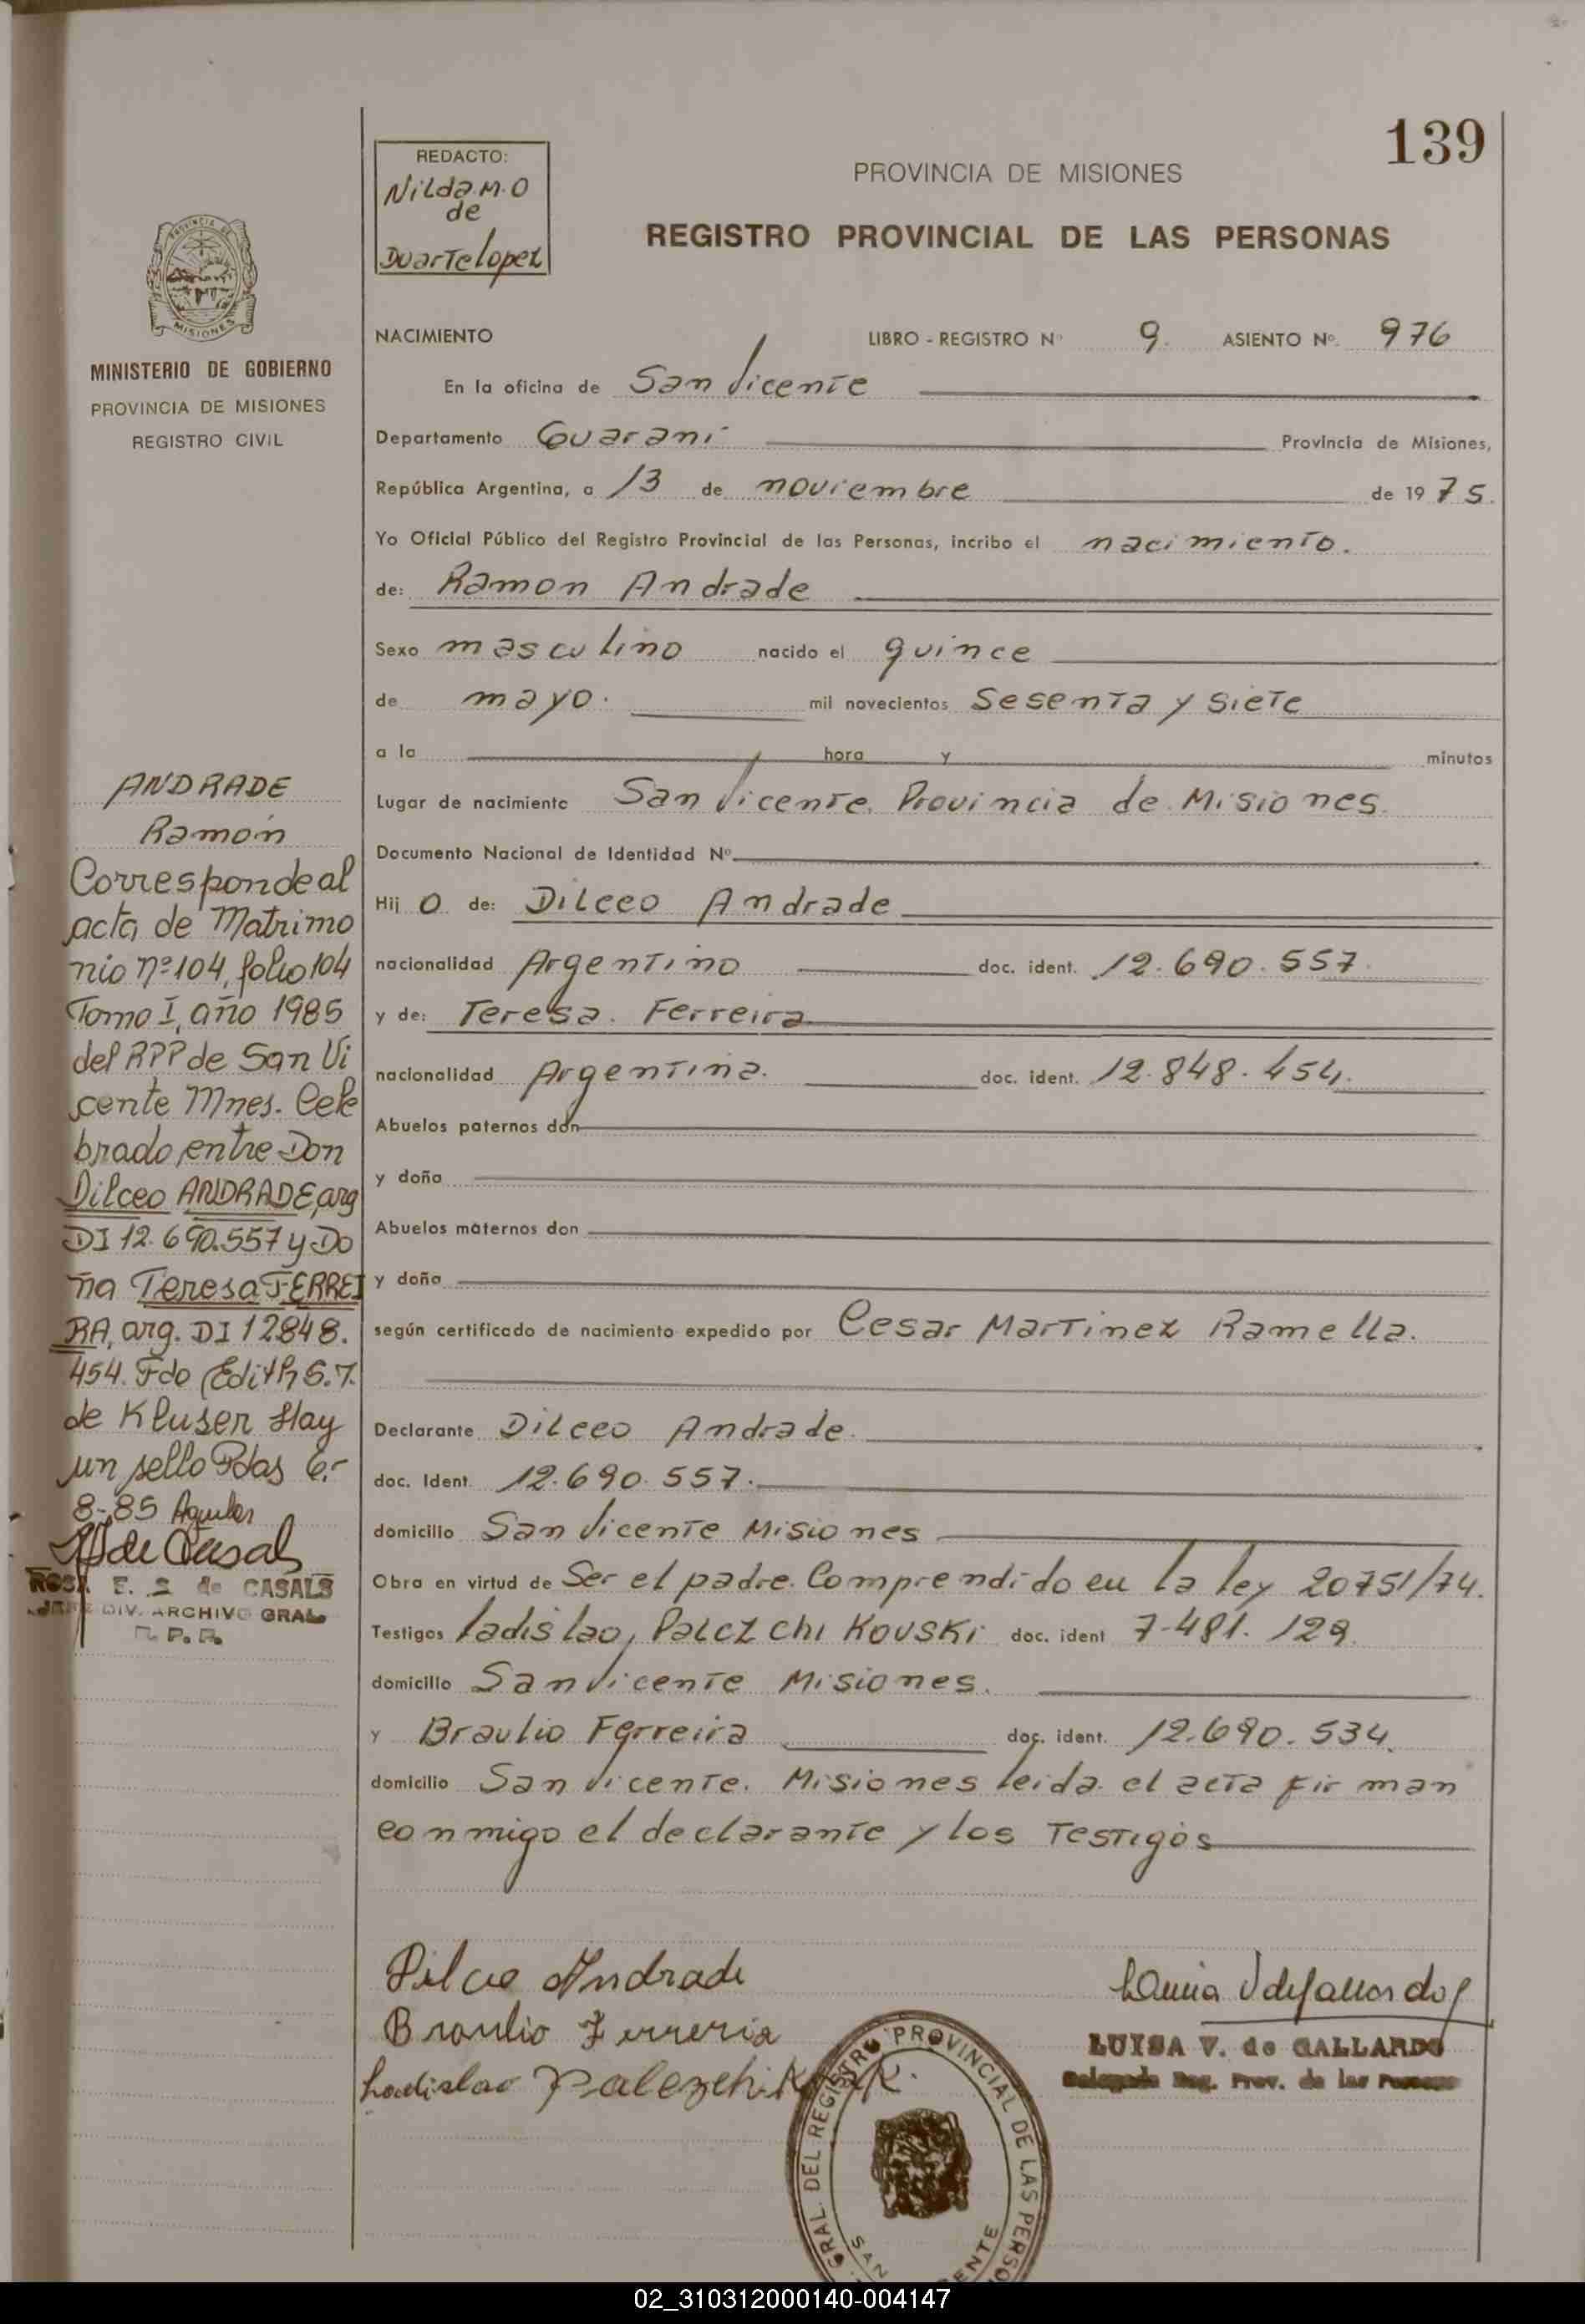 139
REDACTO:
Nilda.M.O
de
Duarte lopez
PROVINCIA DE MISIONES
REGISTRO PROVINCIAL DE LAS PERSONAS
MISIONES
MINISTERIO DE GOBIERNO
PROVINCIA DE MISIONES
REGISTRO CIVIL
NACIMIENTO LIBRO - REGISTRO Nº 9. ASIENTO Nº. 976
En la oficina de San Vicente
Departamento Guaraní Provincia de Misiones,
República Argentina, a 13 de noviembre de 1975.
Yo Oficial Público del Registro Provincial de las Personas, incribo el nacimiento.
de: Ramon Andrade
Sexo masculino nacido el quince
de mayo. mil novecientos Sesenta y siete
a la hora y minutos
Lugar de nacimiento San Vicente. Provincia de Misiones.
Documento Nacional de Identidad Nº
Hij o de: Dilceo Andrade
nacionalidad Argentino doc. ident. 12.690.557.
y de: Teresa. Ferreira
nacionalidad Argentina. doc. ident. 12.848.454.
Abuelos paternos don
y doña
Abuelos maternos don
y doña
según certificado de nacimiento expedido por Cesar Martinez Ramella.
Declarante Dilceo Andrade.
doc. Ident. 12.690.557.
domicilio San Vicente Misiones
Obra en virtud de Ser el padre. Comprendido en la ley 20751/74.
Testigos ladislao, Palczchi Kouski doc. ident 7.481.129.
domicilio San Vicente Misiones.
y Braulio Ferreira doc. ident. 12.690.534.
domicilio San Vicente. Misiones leida el acta firman
conmigo el declarante y los Testigos
ANDRADE
Ramón
Corresponde al
acta de Matrimo
nio nº 104, folio 104
Tomo I, año 1985
del RPP de San Vi
cente Mnes. Cele
brado, entre Don
Dilceo ANDRADE, arg
DI 12.690.557 y Do
ña Teresa FERREI
RA, arg. DI 12848.
454. Fdo (Edith S.T.
de Kluser Hay
un sello Pdas 6.-
8-,85 Aguilar
de Casals
ROSA E. S de CASALS
JEFE DIV. ARCHIVO GRAL
R. P. P.
Dilceo Andrade
Braulio Ferreria
Ladislao
LUISA V. de GALLARDO
Delegada Reg. Prov. de las Personas
GRAL. DEL REGISTRO PROVINCIAL DE LAS PERSO
SAN ENTE
02_310312000140-004147